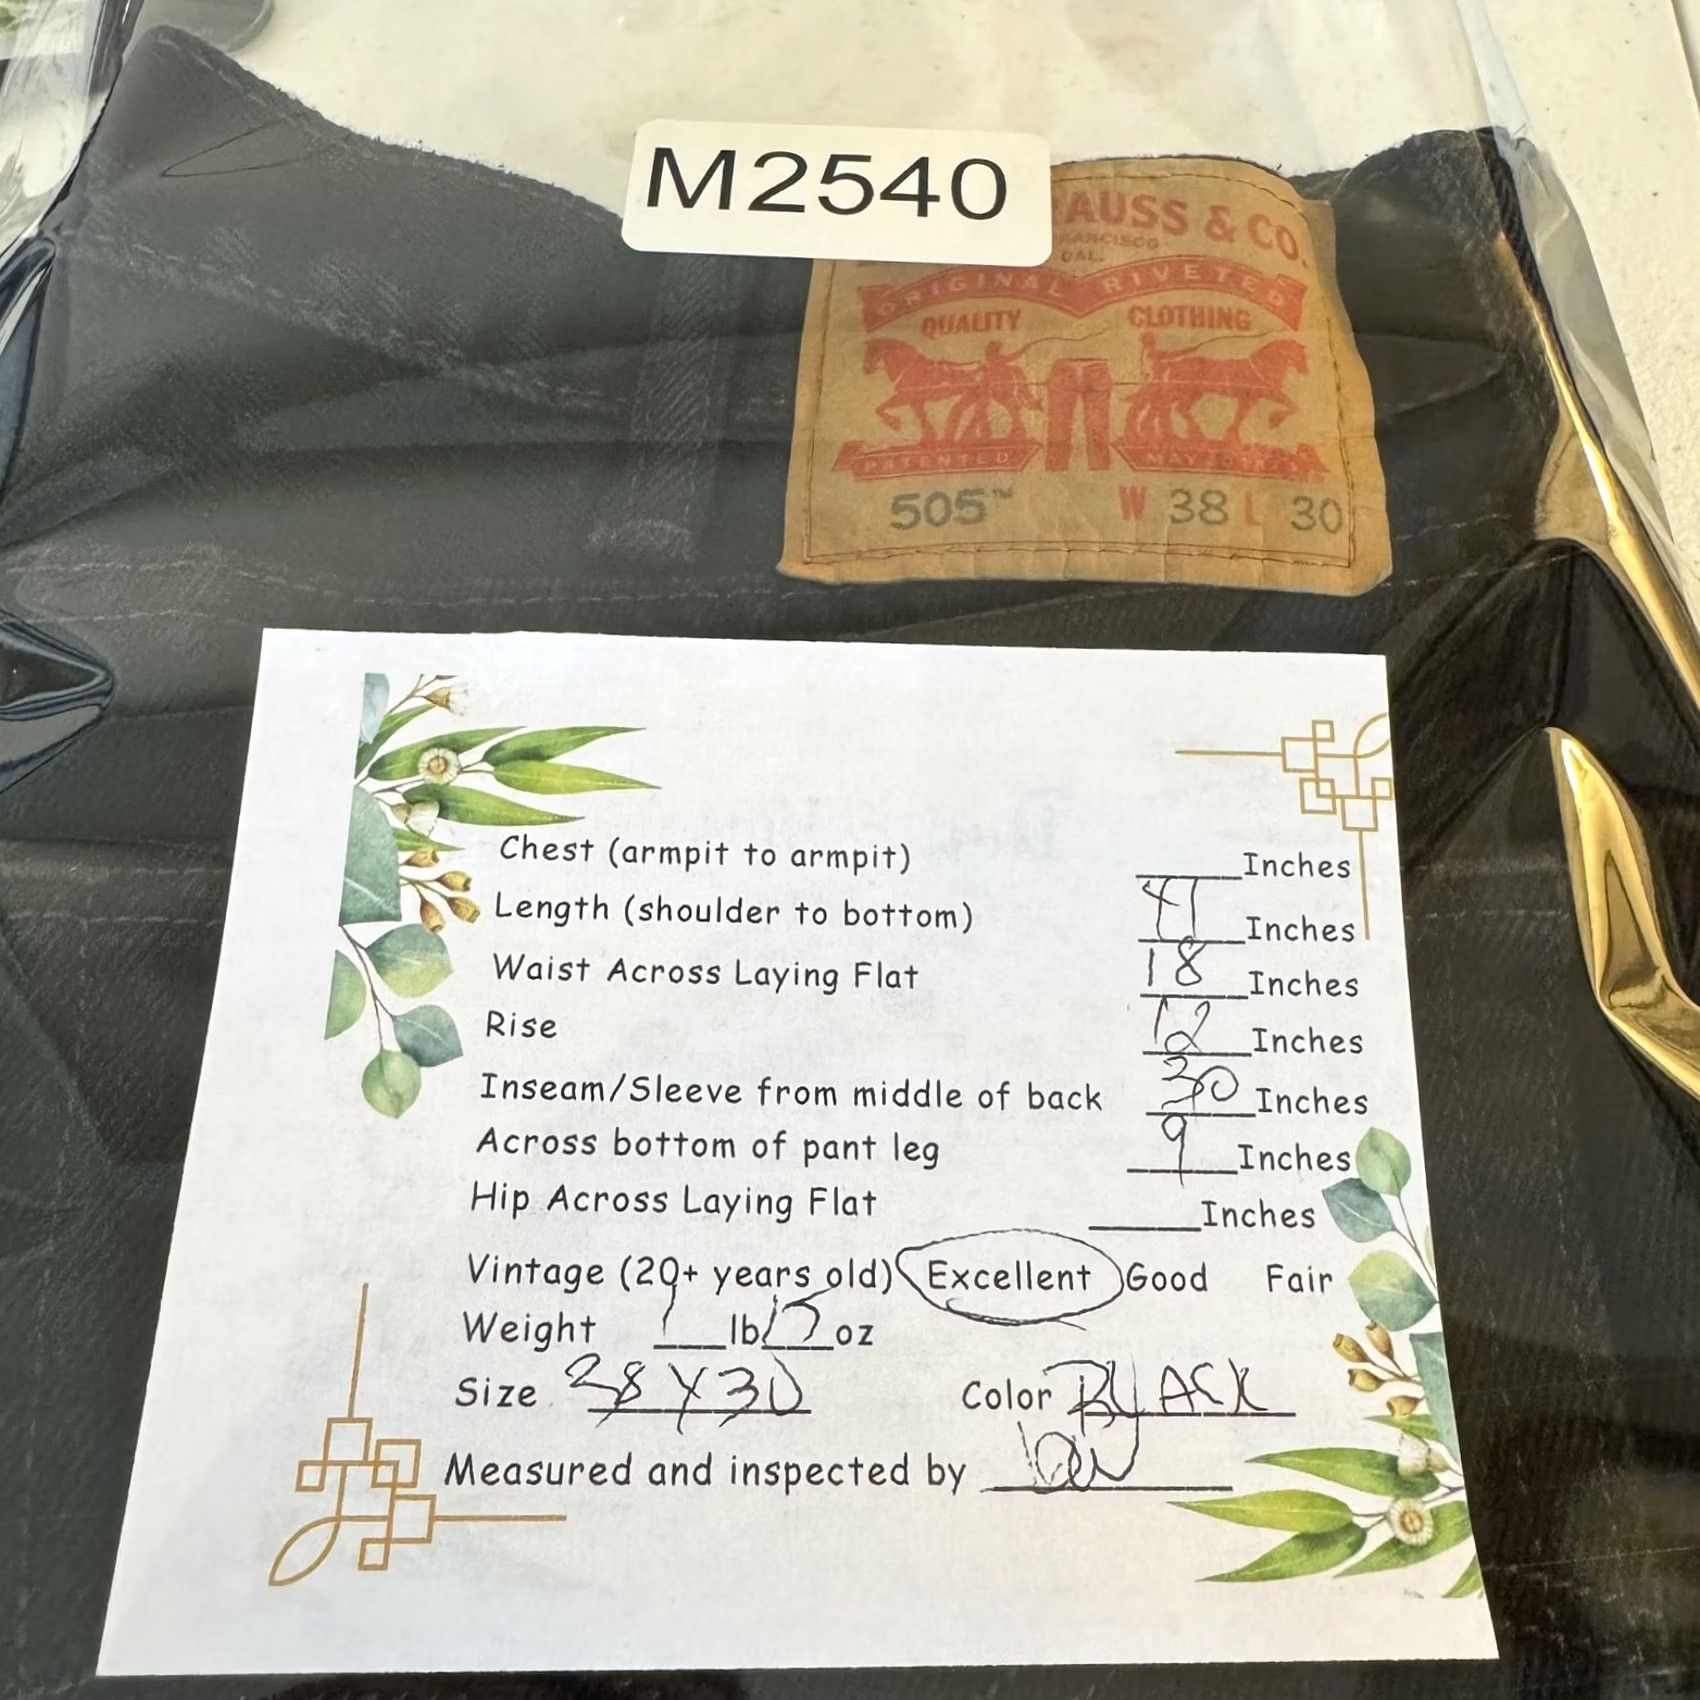 M2540
AUSS & CO.
ANCISCO
CAL.
ORIGINAL RIVETED
QUALITY CLOTHING
PATENTED MAY
505™ W 38 L 30
Chest (armpit to armpit) ____Inches
Length (shoulder to bottom) 41 Inches
Waist Across Laying Flat 18 Inches
Rise 12 Inches
Inseam/Sleeve from middle of back 30 Inches
Across bottom of pant leg 9 Inches
Hip Across Laying Flat ____Inches
Vintage (20+ years old) Excellent Good Fair
Weight 1 lb oz
Size 38 X 30 Color BLACK
Measured and inspected by